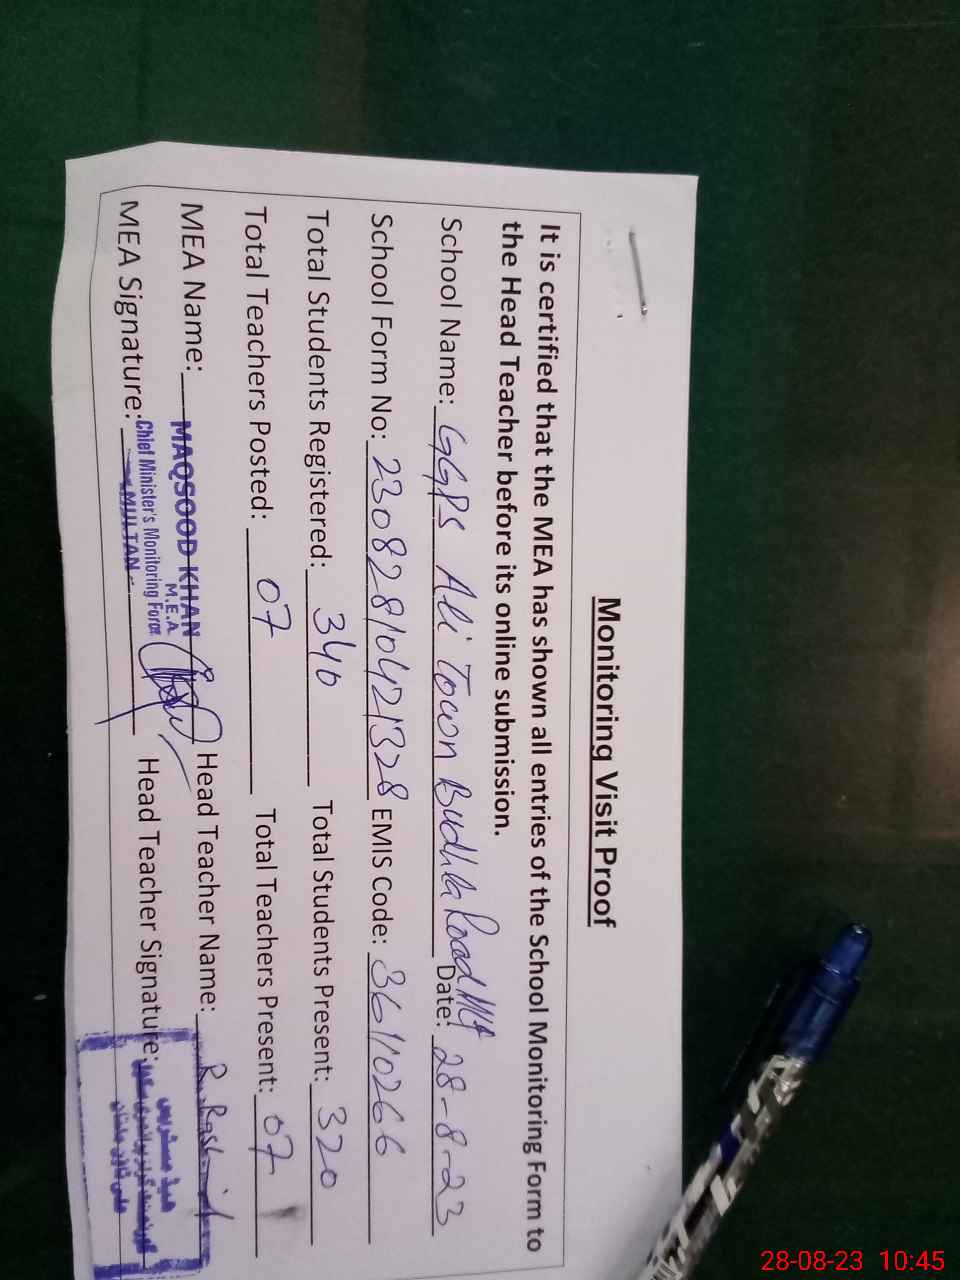 Monitoring Visit Proof
It is certified that the MEA has shown all entries of the School Monitoring Form to
the Head Teacher before its online submission.
School Name: GGPS Ali Town Budhla Road Mtn Date: 28-8-23
School Form No: 23082810421328 EMIS Code: 36110266
Total Students Registered: 340 Total Students Present: 320
Total Teachers Posted: 07 Total Teachers Present: 07
MEA Name: MAQSOOD KHAN Head Teacher Name: R. Rashid
M.E.A
Chief Minister's Monitoring Force
MEA Signature: MULTAN Head Teacher Signature:
ہیڈ مسٹریس
علی ٹاؤن ملتان
28-08-23 10:45